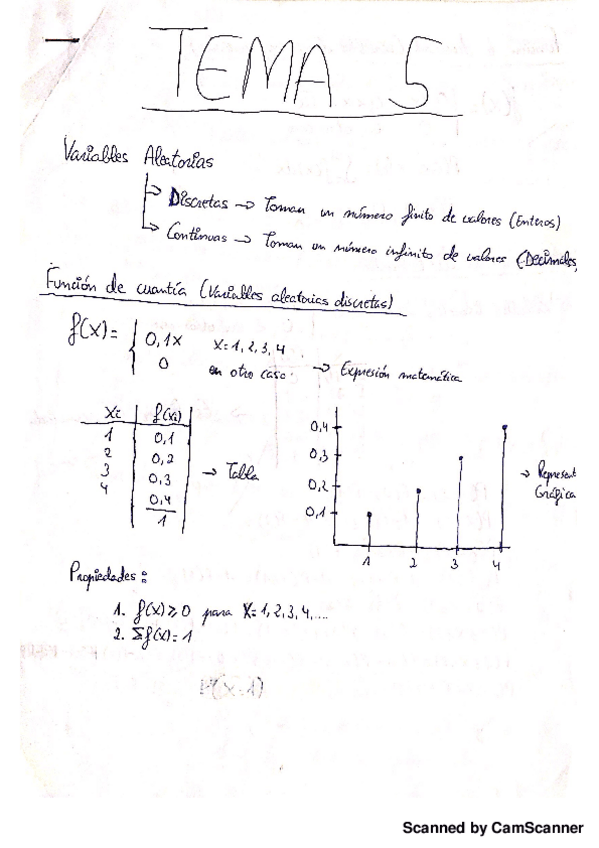 TEMA 5
Variables Aleatorias
Discretas → Toman un número finito de valores (Enteros)
Continuas → Toman un número infinito de valores (Decimales,
Función de cuantía (Variables aleatorias discretas)
f(x)= { 0,1x x=1,2,3,4
0 en otro caso. → Expresión matemática
Xi f(xi)
1 0,1
2 0,2
3 0,3
4 0,4
1
→ Tabla
0,4
0,3
0,2
0,1
1 2 3 4
→ Represent
Gráfica
Propiedades:
1. f(x)≥0 para X=1,2,3,4,....
2. Σf(x)=1
(x=1)
Scanned by CamScanner